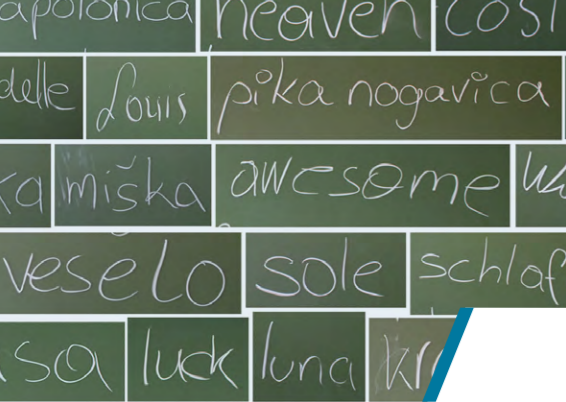 apolonica heaven
delle Louis pika nogavica
miška awesome
veselo sole schlaf
luck luna